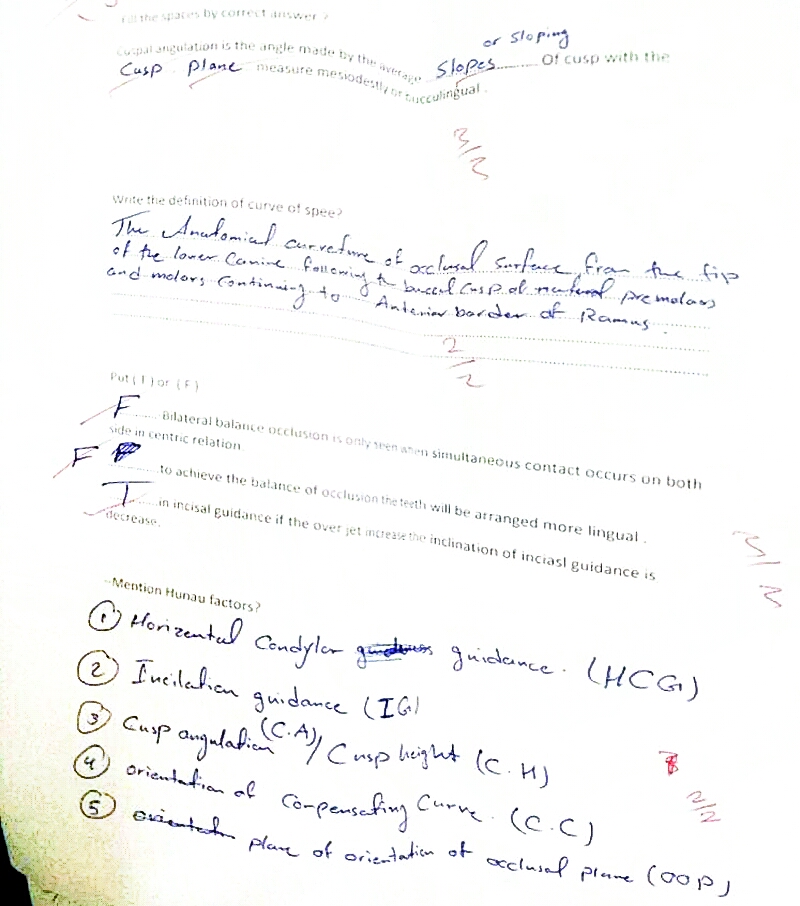 Fill the spaces by correct answer ?
or sloping
cuspal angulation is the angle made by the average slopes ........ Of cusp with the
Cusp plane measure mesiodestly or bucculingual .
3/2
Write the definition of curve of spee?
The Anatomical curveture of occlusal surface, from the tip
of the lower Canine following the buccal Cusp of natural premolars
and molars Continuing to Anterior border of Ramus .
2/2
Put ( T ) or ( F )
F ........ Bilateral balance occlusion is only seen when simultaneous contact occurs on both
side in centric relation.
F ........ to achieve the balance of occlusion the teeth will be arranged more lingual .
T ...... in incisal guidance if the over jet increase the inclination of inciasl guidance is
decrease.
3/3
-Mention Hunau factors?
① Horizental Condylar guidance. (HCG)
② Incilation guidance (IG)
③ Cusp angulation (C.A) / Cusp height (C.H)
④ orientation of Compensating Curve. (C.C)
2/2
⑤ plane of orientation of occlusal plane (OOP)